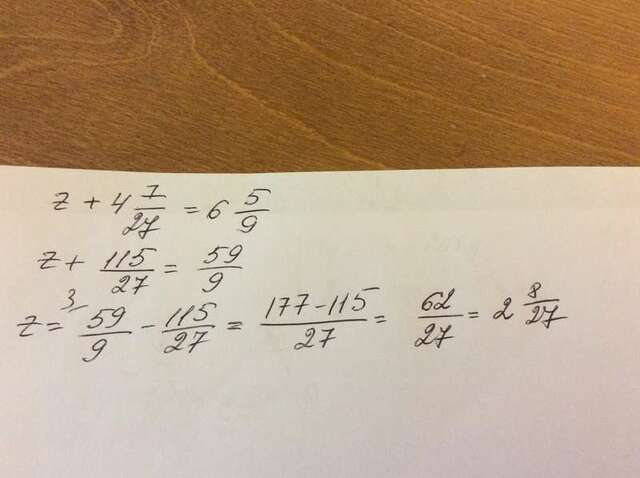 z + 4 7/27 = 6 5/9
z + 115/27 = 59/9
z = 3 59/9 - 115/27 = 177-115/27 = 62/27 = 2 8/27